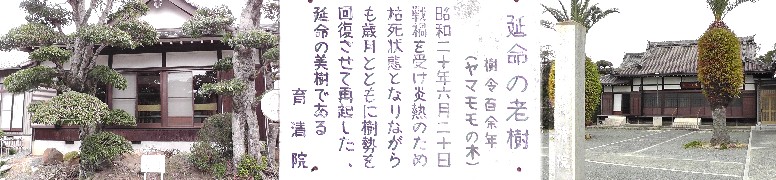 延命の老樹
樹令百余年
(ヤマモモの木)
昭和二十年六月二十日
戦禍を受け炎熱のため
枯死状態となりながら
も歳月とともに樹勢を
回復させて再起した、
延命の美樹である
育清院